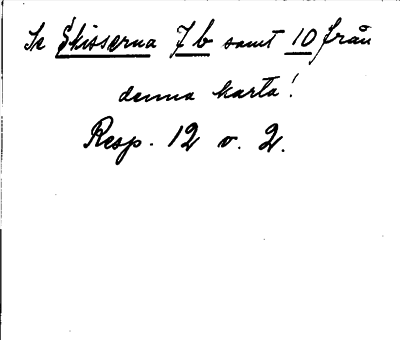 Se Skisserna 7b samt 10 från
denna karta!
Resp. 12 v. 2.